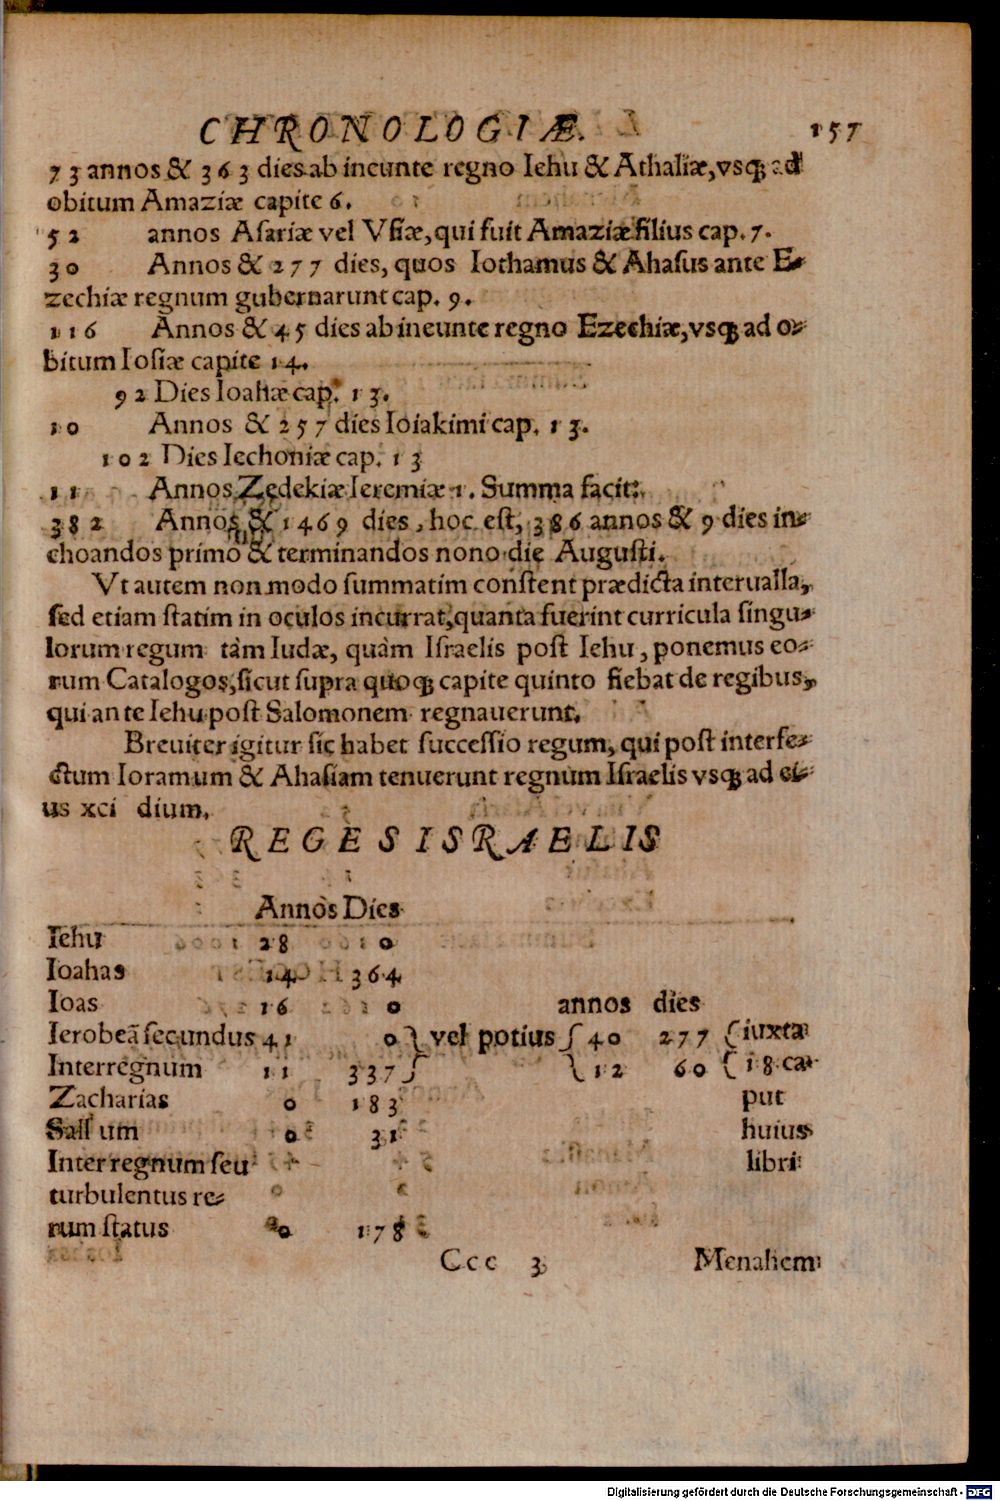 CHRONOLOGIÆ. 157
73 annos & 363 dies ab incunte regno Iehu & Athaliæ, vsq; ad
obitum Amaziæ capite 6.
52 annos Asariæ vel Vsiæ, qui fuit Amaziæ filius cap. 7.
30 Annos & 277 dies, quos Iothamus & Ahasus ante E-
zechiæ regnum gubernarunt cap. 9.
116 Annos & 45 dies ab ineunte regno Ezechiæ, vsq; ad o-
bitum Iosiæ capite 14.
92 Dies Ioahæ cap. 13.
10 Annos & 257 dies Ioiakimi cap. 13.
102 Dies Iechoniæ cap. 13
11 Annos Zedekiæ Ieremiæ 1. Summa facit:
382 Annos & 1469 dies, hoc est, 386 annos & 9 dies in-
choandos primo & terminandos nono die Augusti.
Vt autem non modo summatim constent prædicta interualla,
sed etiam statim in oculos incurrat, quanta fuerint curricula singu-
lorum regum tàm Iudæ, quàm Israelis post Iehu, ponemus eo-
rum Catalogos, sicut supra quoq; capite quinto fiebat de regibus,
qui ante Iehu post Salomonem regnauerunt.
Breuiter igitur sic habet successio regum, qui post interfe-
ctum Ioramum & Ahasiam tenuerunt regnum Israelis vsq; ad ei-
us xci dium.
REGES ISRAELIS
Annos Dies
Iehu 28 0
Ioahas 14 364
Ioas 16 0 annos dies
Ierobeã secundus 41 0 } vel potius { 40 277 { iuxta
Interregnum 11 337 } { 12 60 { 18 ca-
Zacharias 0 183 put
Sallum 0 31 huius
Interregnum seu libri
turbulentus re-
rum status 0 178
Ccc 3 Menahem
Digitalisierung gefördert durch die Deutsche Forschungsgemeinschaft - DFG